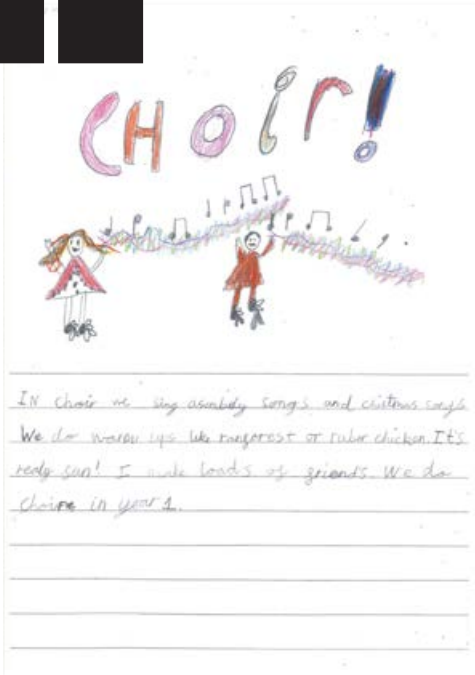 CHOIR!
IN choir we sing asembely songs and chistmas songs
We do warm ups like ranforest or ruber chicken. It's
realy fun! I make loads of friends. We do
choire in year 1.